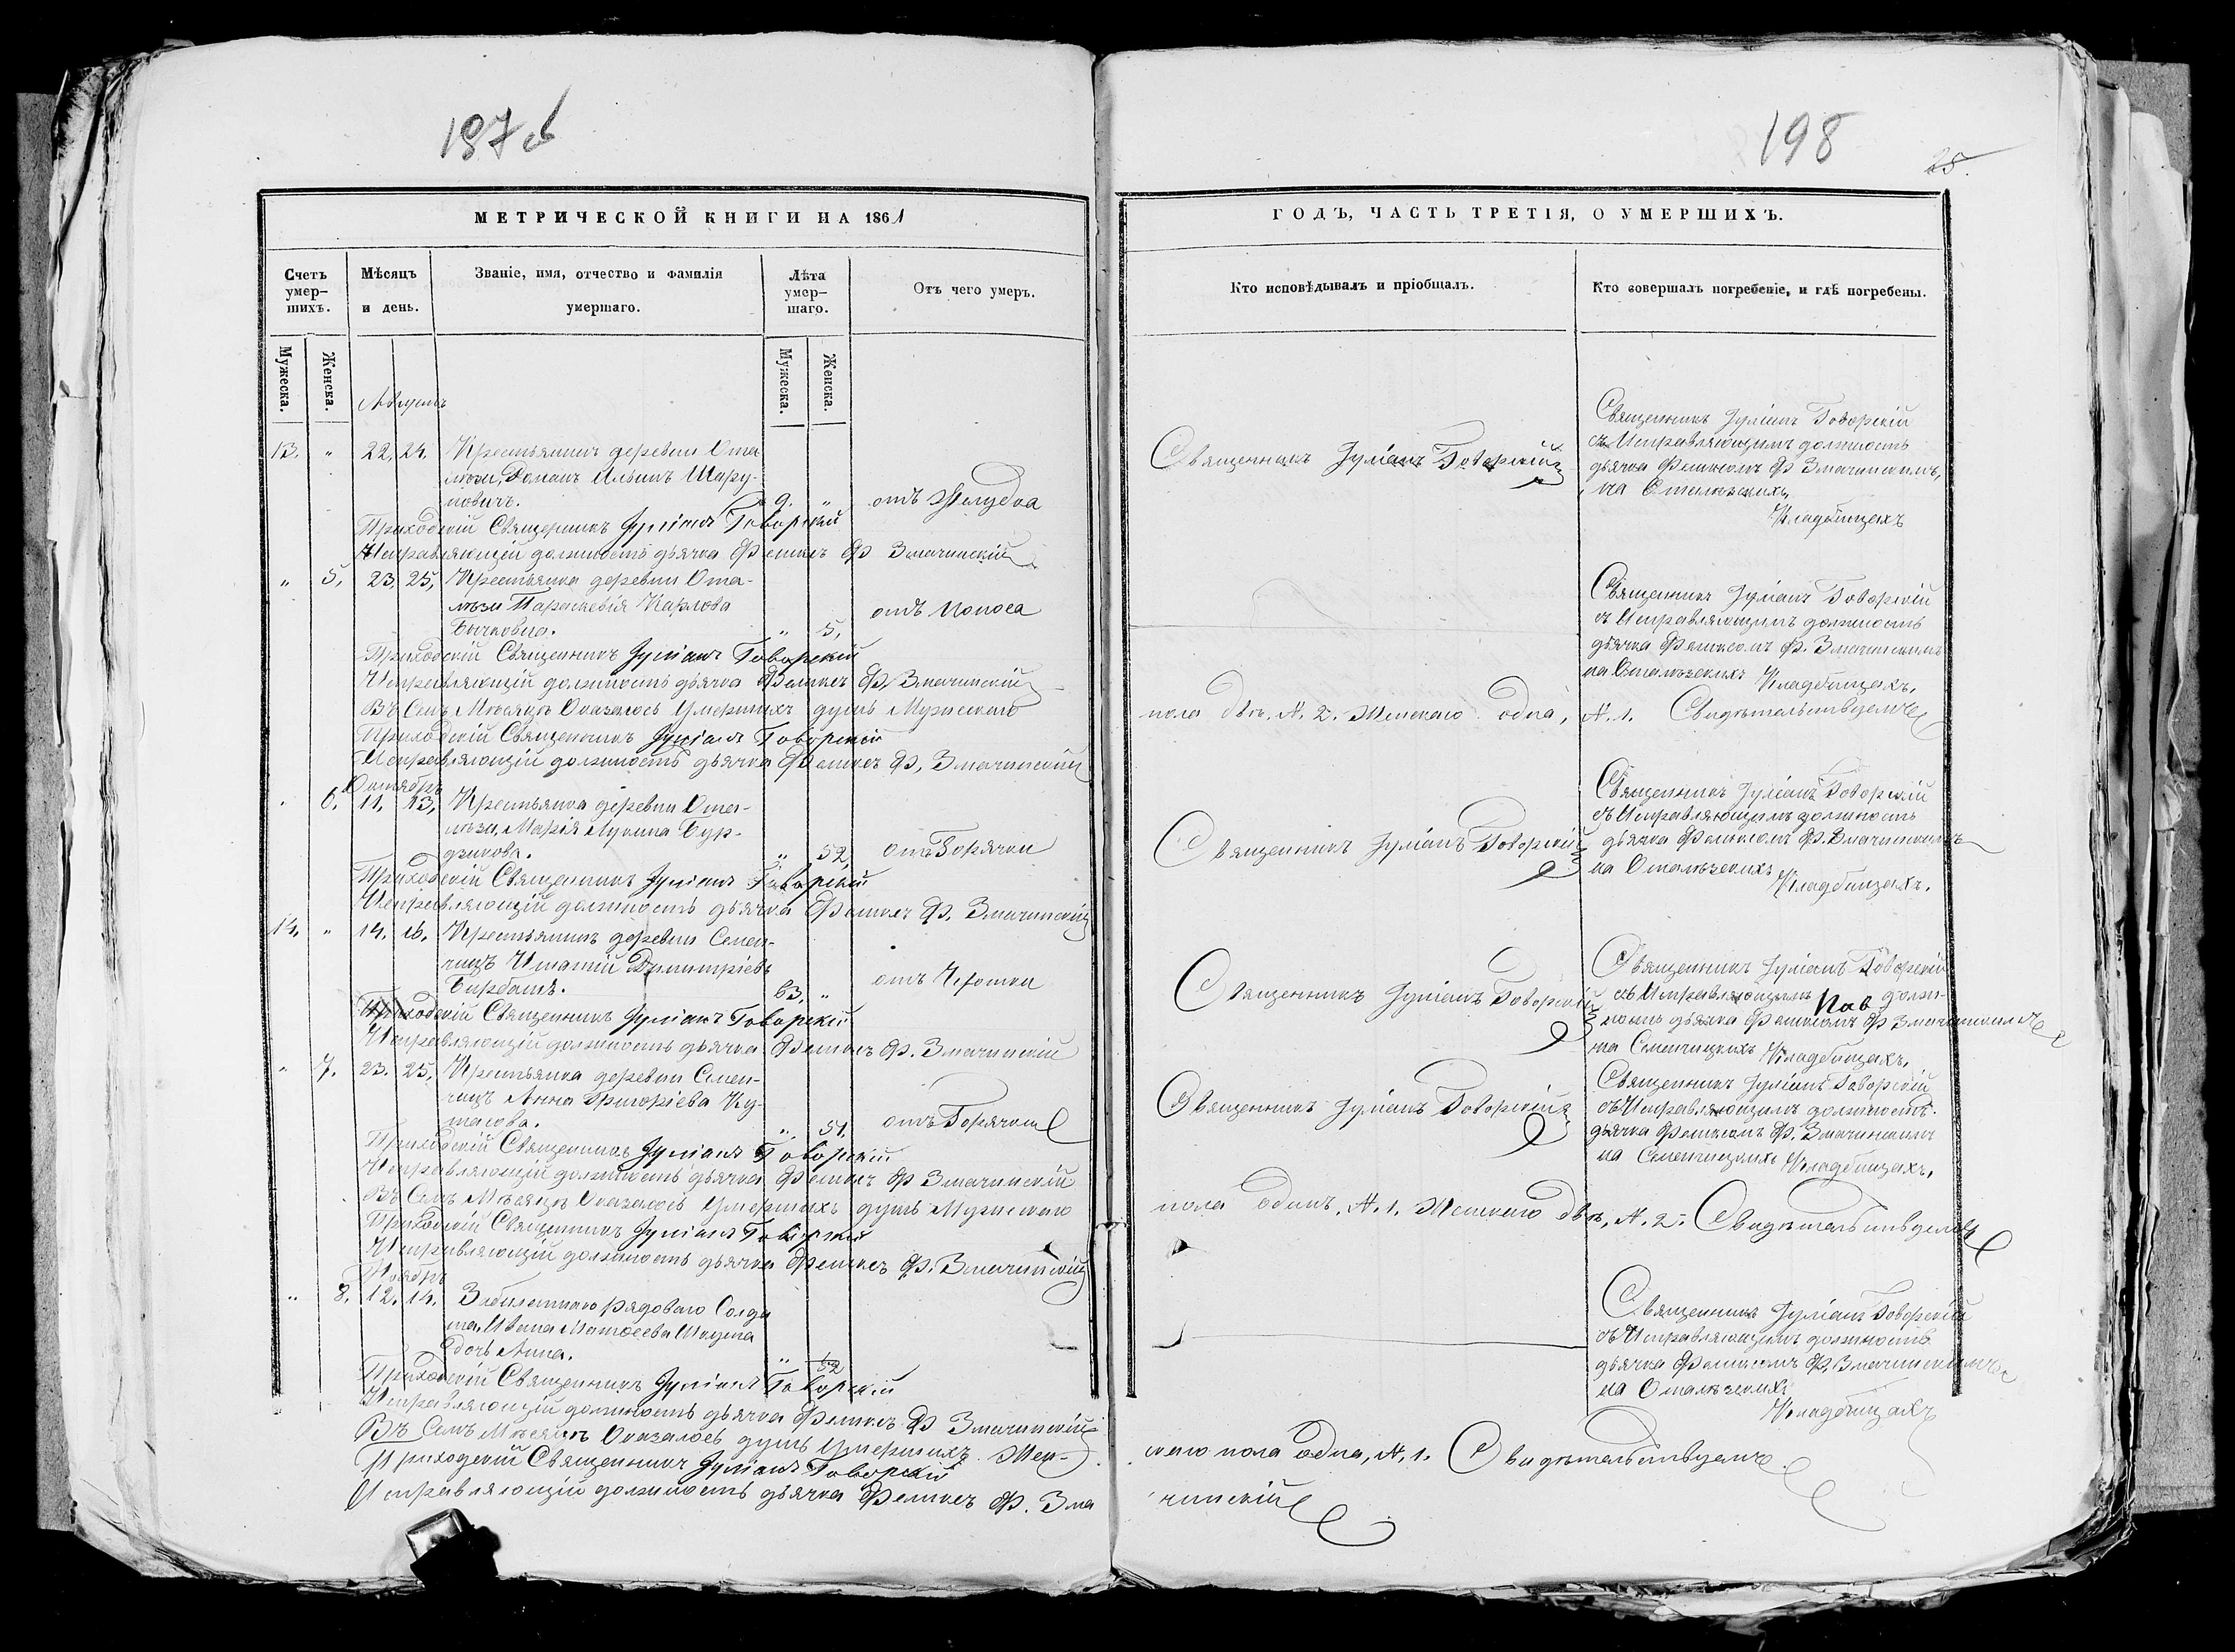 197 об
198
25.
МЕТРИЧЕСКОЙ КНИГИ НА 1861
ГОДЪ, ЧАСТЬ ТРЕТІЯ, О УМЕРШИХЪ.
Счетъ умер-шихъ.
Мѣсяцъ и день.
Званіе, имя, отчество и фамилія умершаго.
Лѣта умер-шаго.
Отъ чего умеръ.
Кто исповѣдывалъ и пріобщалъ.
Кто совершалъ погребеніе, и гдѣ погребены.
Мужеска.
Женска.
Мужеска.
Женска.
13. " 22. 24. Крестьянинъ деревни Ома-
Романъ Ильинъ Шару-
повичъ. 9. " отъ Желудка
Священникъ Іуліанъ Говорскій
Священникъ Іуліанъ Говорскій
съ Исправляющимъ должность
дьячка Феликсомъ Ф Змачинскимъ,
на
Кладбищахъ
Приходскій Священникъ Іуліанъ Говорскій
Исправляющій должность дьячка Феликсъ Ф Змачинскій
" 5, 23, 25, Крестьянка деревни Ома-
Параскевія Карпова
" 5, отъ Поноса
Священникъ Іуліанъ Говорскій
съ Исправляющимъ должность
дьячка Феликсомъ Ф. Змачинскимъ
на Кладбищахъ,
Приходскій Священникъ Іуліанъ Говорскій
Исправляющій должность дьячка Феликсъ Ф, Змачинскій
Въ Семъ Мѣсяцѣ Оказалось Умершихъ душъ Мужескаго
пола двѣ, N. 2. Женскаго одна, N. 1. Свидѣтельствуемъ
Приходскій Священникъ Іуліанъ Говорскій
Исправляющій должность дьячка Феликсъ Ф, Змачинскій
Октябрь
" 6, 11, 13, Крестьянка деревни Ома-
Марія
" 52, отъ Горячки
Священникъ Іуліанъ Говорскій
Священникъ Іуліанъ Говорскій
съ Исправляющимъ должность
дьячка Феликсомъ Ф. Змачинскимъ
на
Кладбищахъ.
Приходскій Священникъ Іуліанъ Говорскій
Исправляющій должность дьячка Феликсъ Ф. Змачинскій
14. " 14. 16. Крестьянинъ деревни Семен-
чицъ Игнатій Димитріевъ
63, "
Священникъ Іуліанъ Говорскій
Священникъ Іуліанъ Говорскій
съ Исправляющимъ долж-
ность дьячка Феликсомъ Ф Змачинскимъ
на Семенчицкихъ Кладбищахъ,
Приходскій Священникъ Іуліанъ Говорскій
Исправляющій должность дьячка Феликсъ Ф. Змачинскій
" 7. 23. 25, Крестьянка деревни Семен-
чицъ Анна Григоріева Ку-
" 51, отъ Горячки
Священникъ Іуліанъ Говорскій
Священникъ Іуліанъ Говорскій
съ Исправляющимъ должность
дьячка Феликсомъ Ф. Змачинскимъ
на Семенчицкихъ Кладбищахъ,
Приходскій Священникъ Іуліанъ Говорскій
Исправляющій должность дьячка Феликсъ Ф Змачинскій
Въ Семъ Мѣсяцѣ Оказалось Умершихъ душъ Мужескаго
пола одинъ, N. 1. Женскаго двѣ, N. 2. Свидѣтельствуемъ
Приходскій Священникъ Іуліанъ Говорскій
Исправляющій должность дьячка Феликсъ Ф. Змачинскій
Ноябрь
" 8, 12. 14. рядоваго Солда
та, Ивана
дочь Анна.
"
Священникъ Іуліанъ Говорскій
съ Исправляющимъ должность
дьячка Феликсомъ Ф. Змачинскимъ
на
Кладбищахъ
Приходскій Священникъ Іуліанъ Говорскій
Исправляющій должность дьячка Феликсъ Ф Змачинскій
Въ Семъ Мѣсяцѣ Оказалось душъ Умершихъ Жен-
скаго пола одна, N. 1. Свидѣтельствуемъ
Приходскій Священникъ Іуліанъ Говорскій
Исправляющій должность дьячка Феликсъ Ф. Зма
чинскій